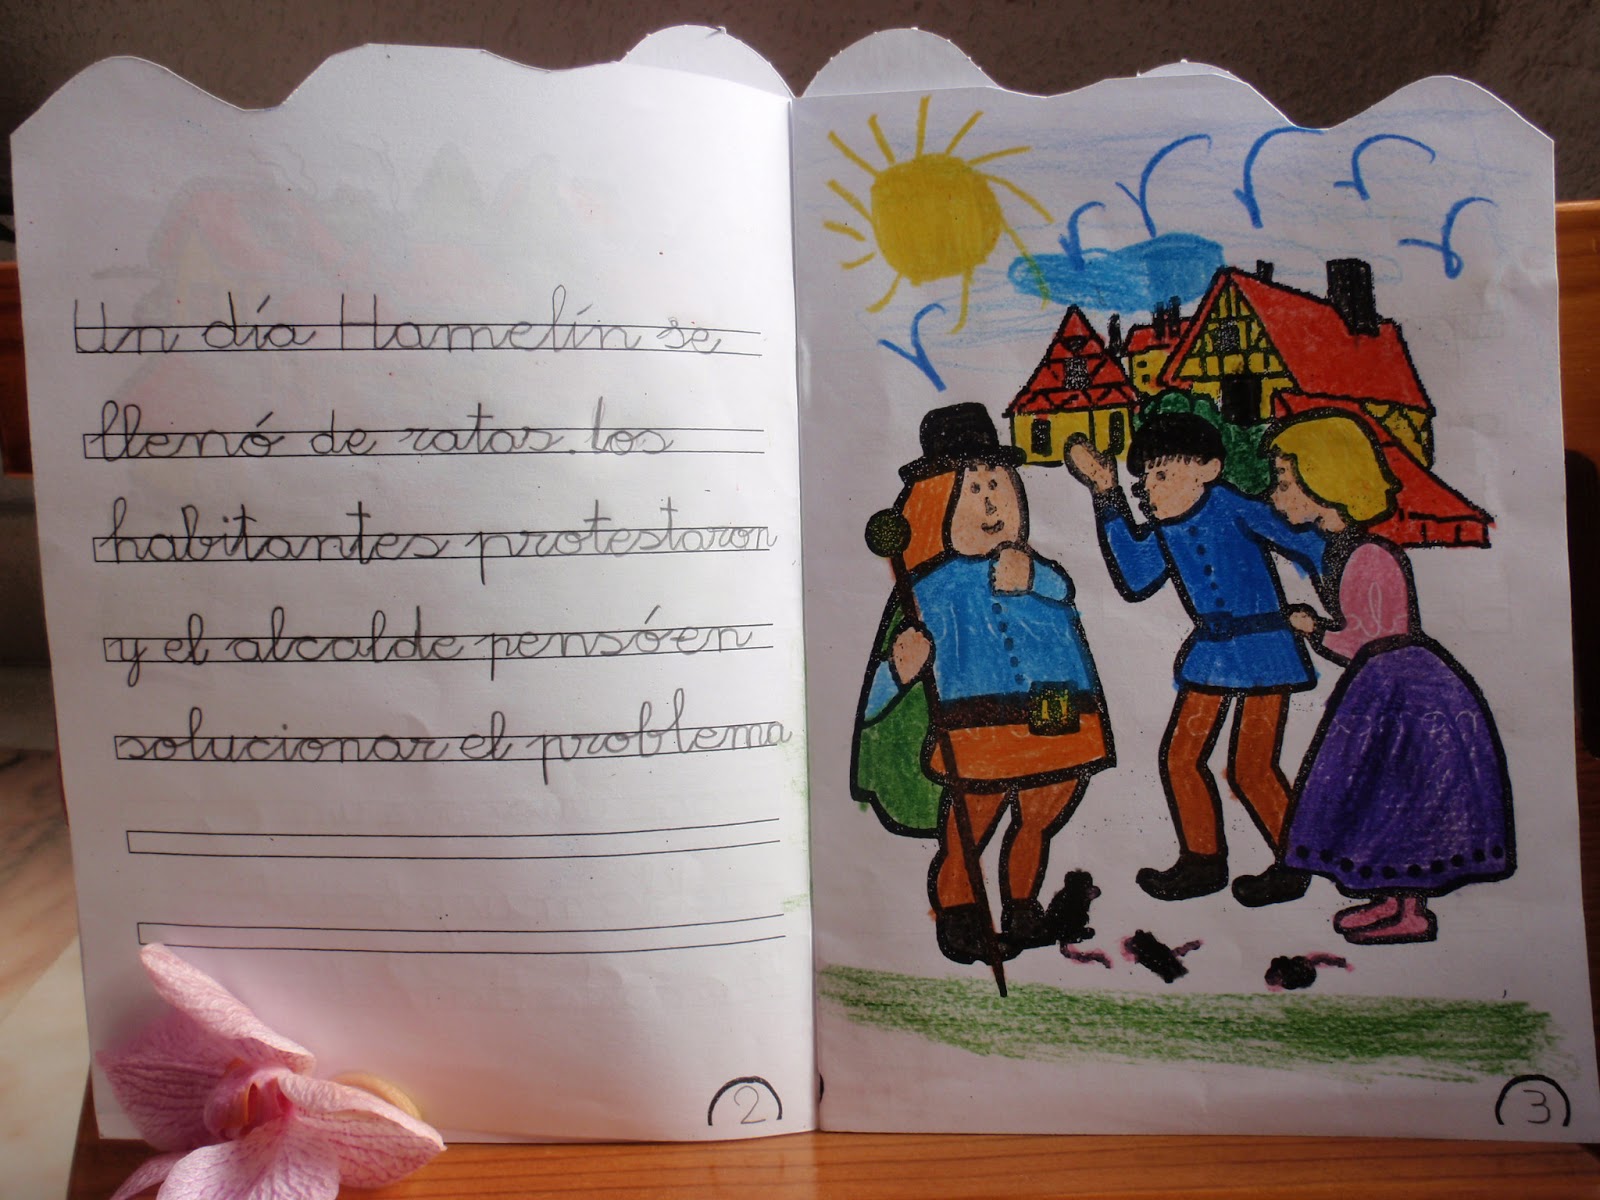 Un día Hamelín se
llenó de ratas. los
habitantes protestaron
y el alcalde pensó en
solucionar el problema
2
3